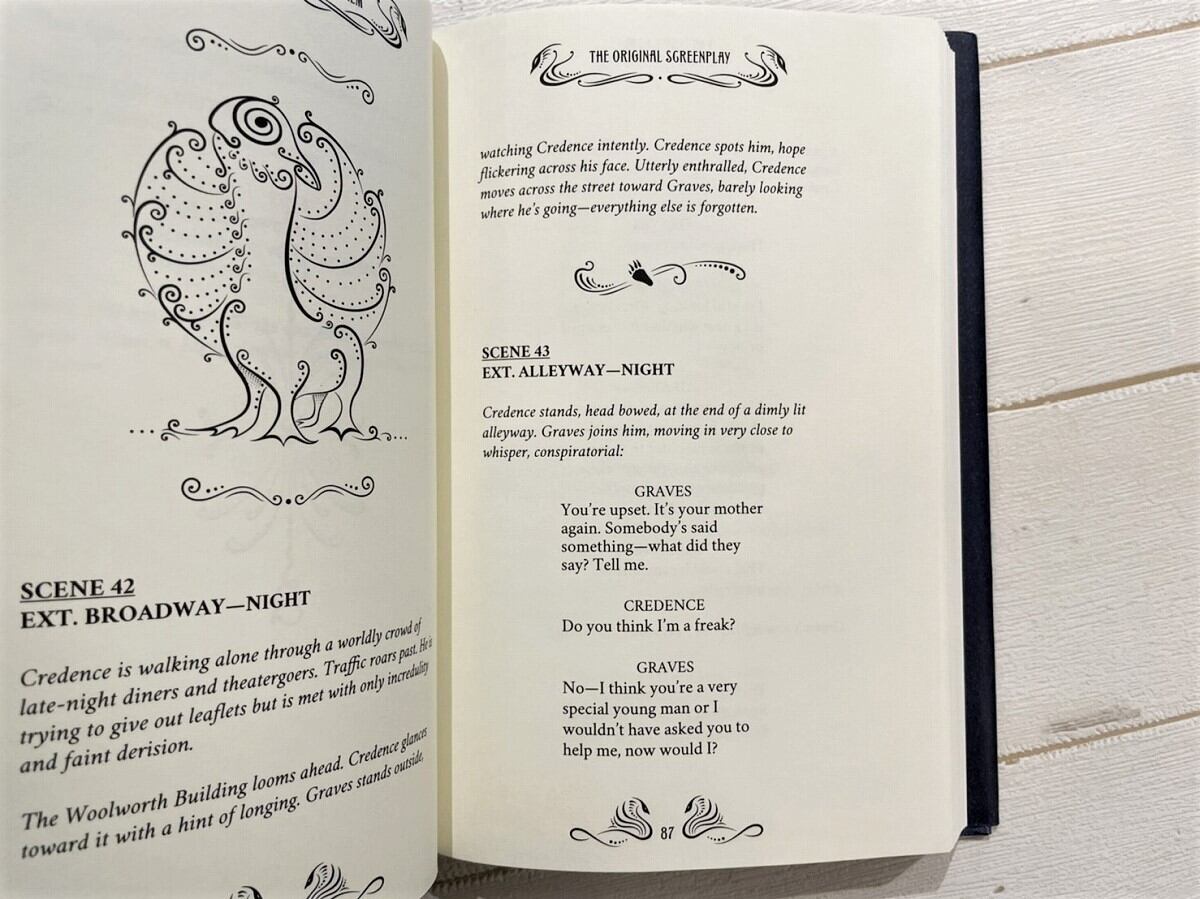 SCENE 42
EXT. BROADWAY—NIGHT
Credence is walking alone through a worldly crowd of
late-night diners and theatergoers. Traffic roars past. He is
trying to give out leaflets but is met with only incredulity
and faint derision.
The Woolworth Building looms ahead. Credence glances
toward it with a hint of longing. Graves stands outside,
THE ORIGINAL SCREENPLAY
watching Credence intently. Credence spots him, hope
flickering across his face. Utterly enthralled, Credence
moves across the street toward Graves, barely looking
where he's going—everything else is forgotten.
SCENE 43
EXT. ALLEYWAY—NIGHT
Credence stands, head bowed, at the end of a dimly lit
alleyway. Graves joins him, moving in very close to
whisper, conspiratorial:
GRAVES
You're upset. It's your mother
again. Somebody's said
something—what did they
say? Tell me.
CREDENCE
Do you think I'm a freak?
GRAVES
No—I think you're a very
special young man or I
wouldn't have asked you to
help me, now would I?
87